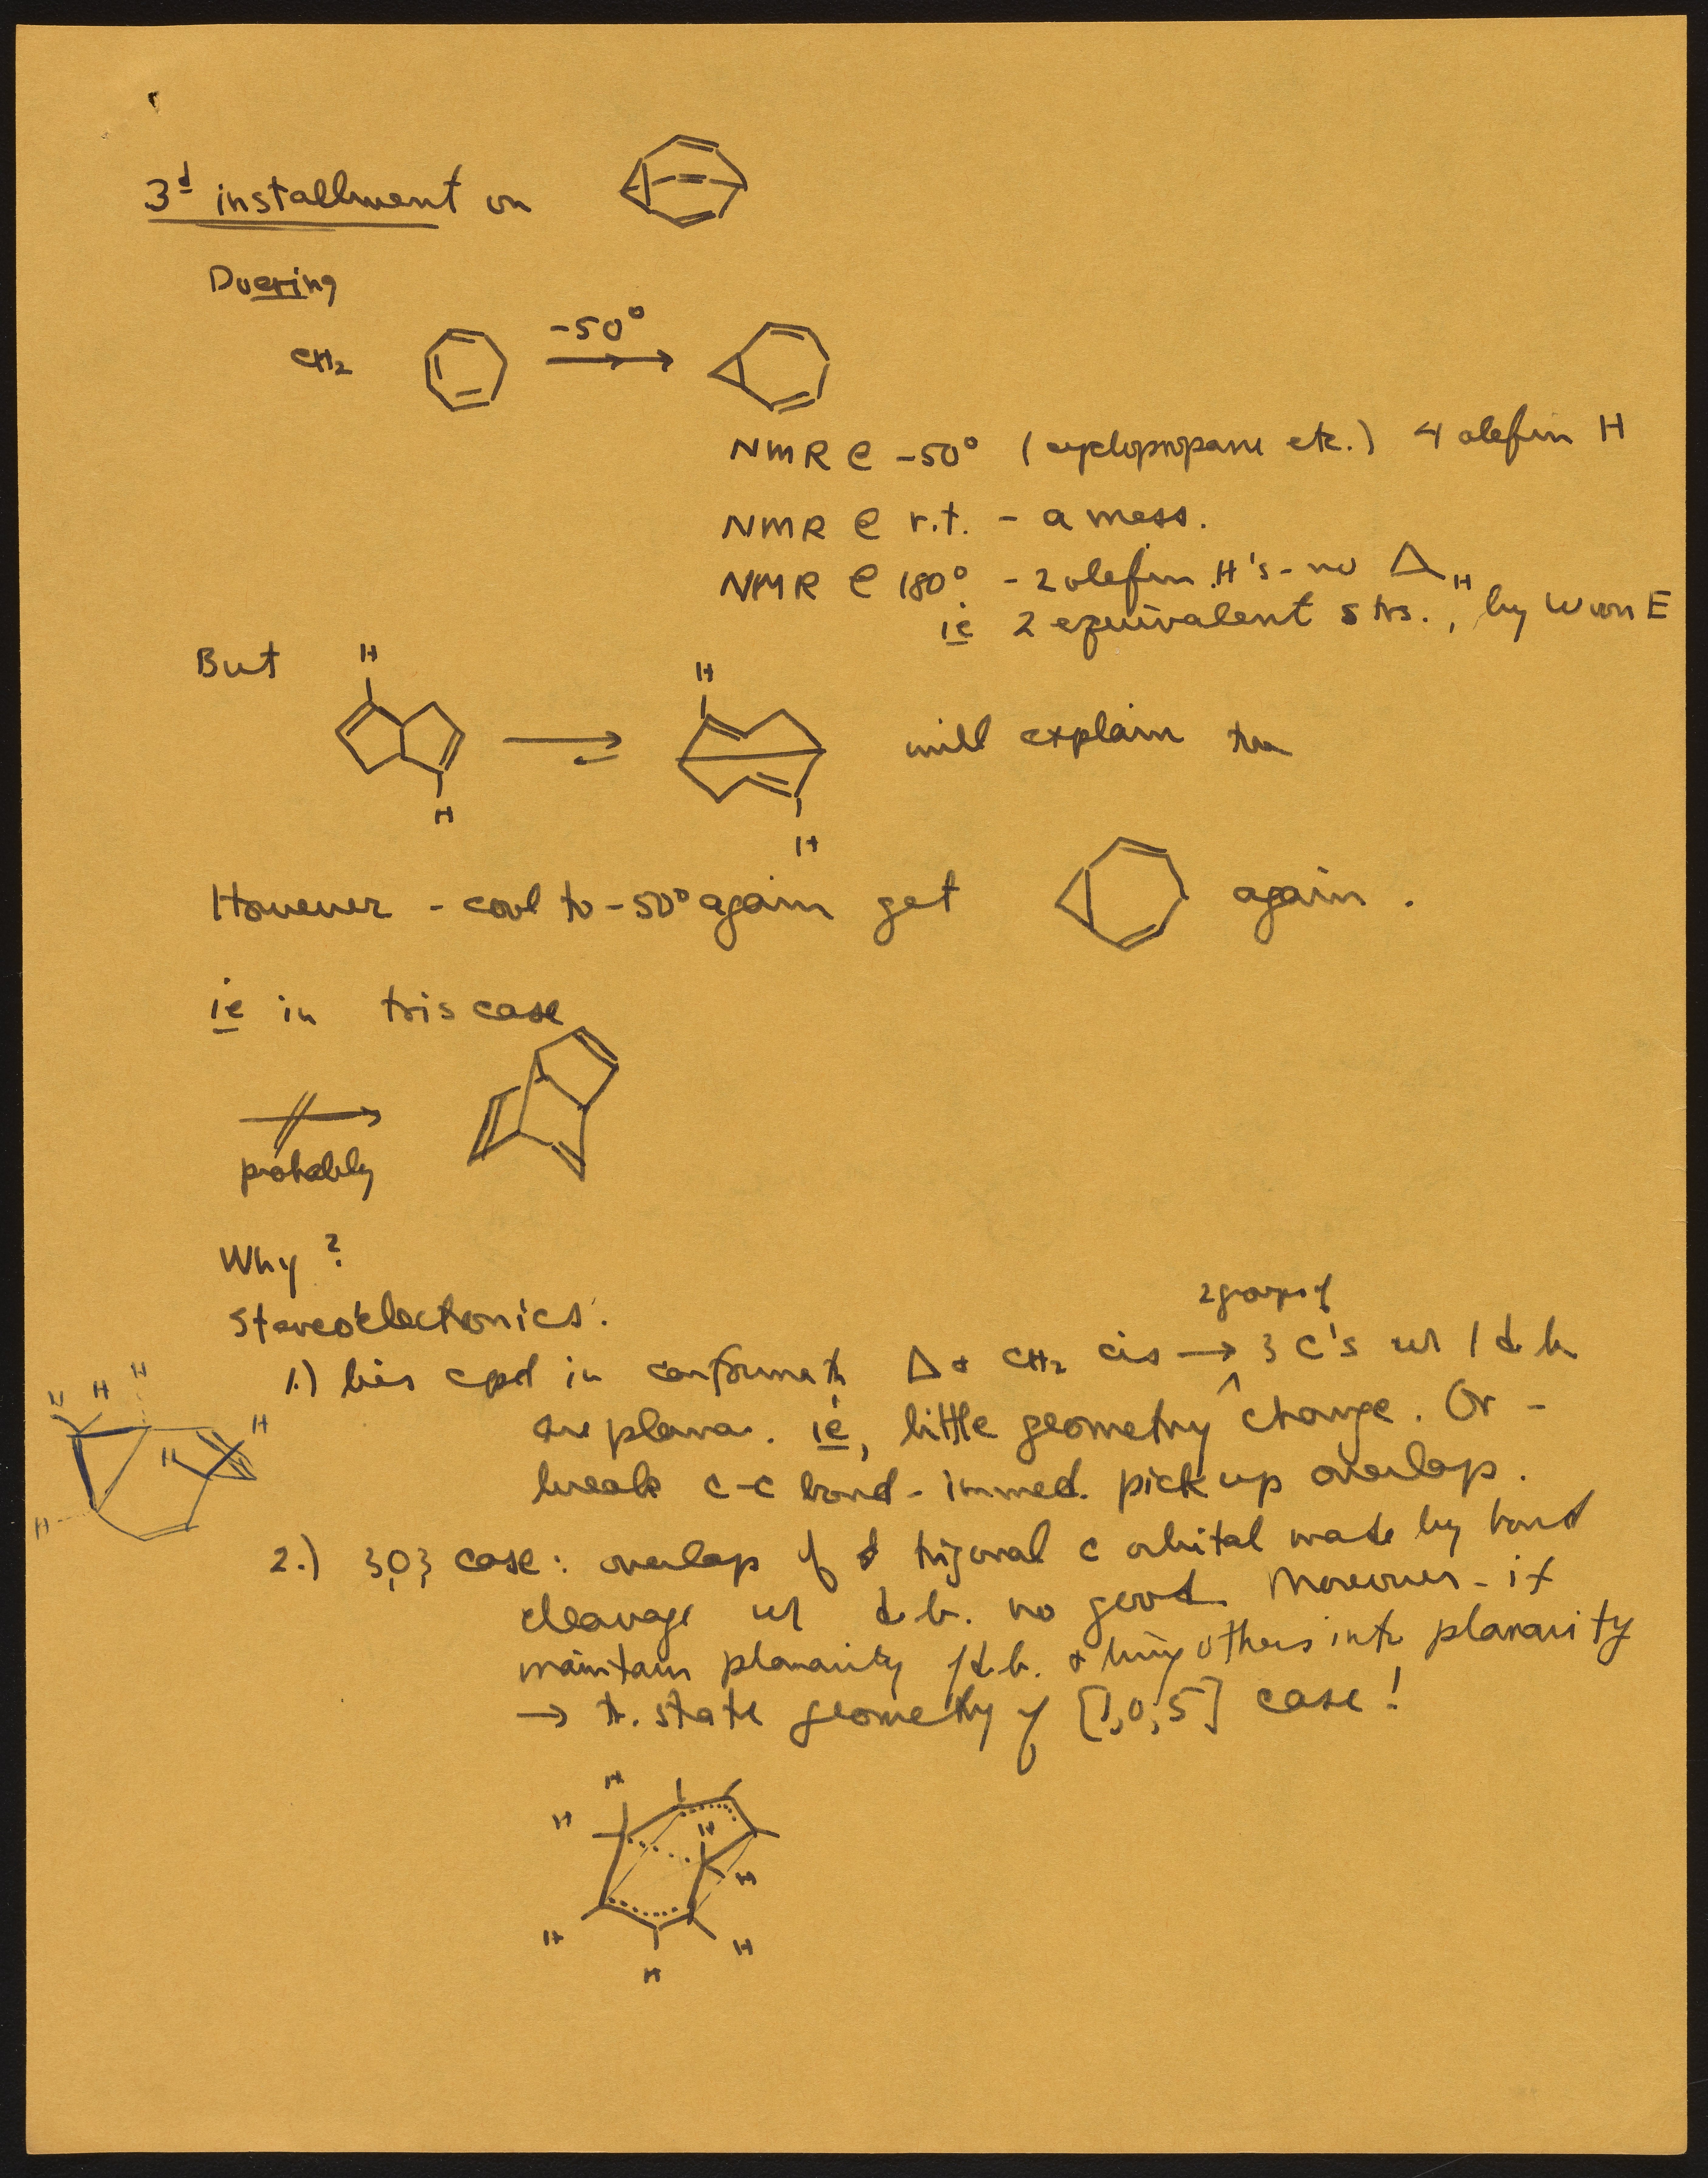 3d installment on
Duering
CH2 -50°
NMR @ -50° (cyclopropane etc.) 4 olefin H
NMR @ r.t. - a mess.
NMR @ 180° - 2 olefin H's - no △H
ie 2 equivalent strs., by W von E
But H H
H H
will explain this
However - cool to -50° again get again.
ie in tris case
probably
Why?
Stereoelectronics:
1.) bis cpd in conformath △ & CH2 cis → 2 groups of 3 C's w/ 1 d.b.
are planar. ie, little geometry change. Or -
break C-C bond - immed. pick up overlap.
H H H H H H
2.) 3,0,3 case: overlap of trigonal c orbital made by bond
cleavage w/ d.b. no good. Moreover - if
maintain planarity 1 d.b. & bring others into planarity
→ tr. state geometry of [1,0,5] case!
H H H H H H H